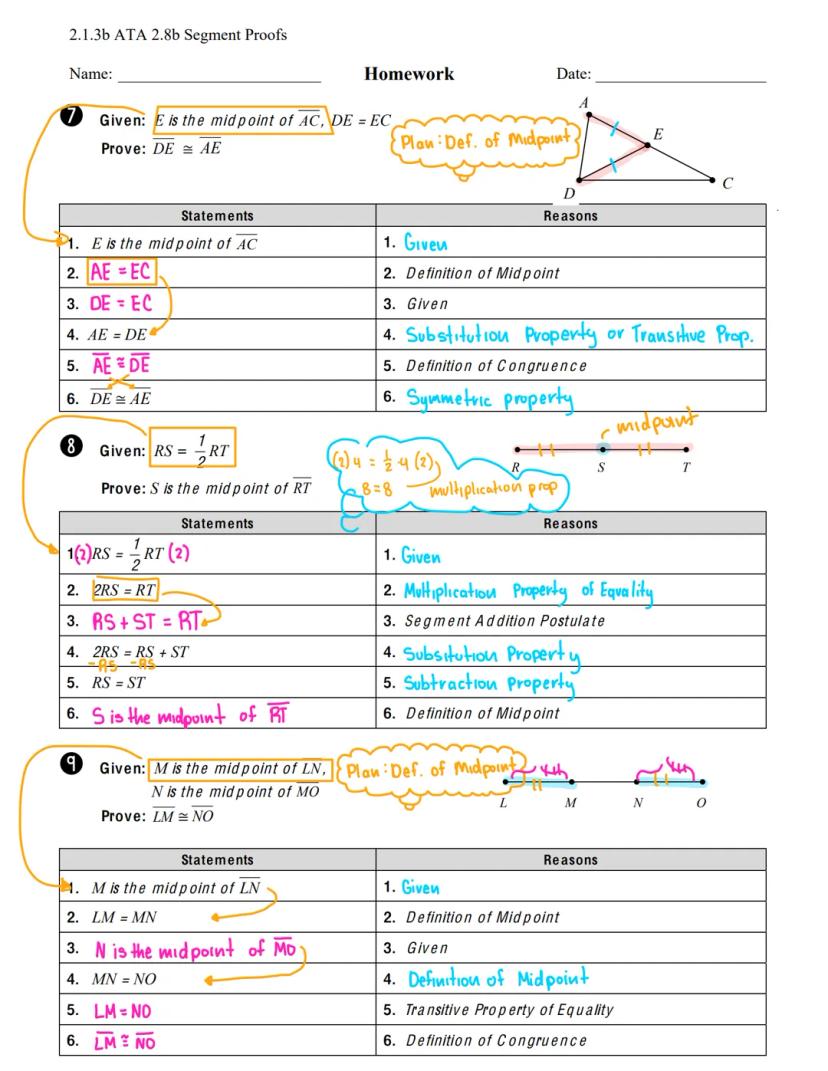 2.1.3b ATA 2.8b Segment Proofs
Name: ____________ Homework Date: ____________
7 Given: E is the midpoint of AC, DE = EC
Plan: Def. of Midpoint
Prove: DE ≅ AE
A
E
D
C
Statements Reasons
1. E is the midpoint of AC 1. Given
2. AE = EC 2. Definition of Midpoint
3. DE = EC 3. Given
4. AE = DE 4. Substitution Property or Transitive Prop.
5. AE ≅ DE 5. Definition of Congruence
6. DE ≅ AE 6. Symmetric property
8 Given: RS = 1/2 RT
midpoint
(2) 4 = 1/2 · 4 (2)
8 = 8 multiplication prop
R S T
Prove: S is the midpoint of RT
Statements Reasons
1(2)RS = 1/2 RT (2) 1. Given
2. 2RS = RT 2. Multiplication Property of Equality
3. RS + ST = RT 3. Segment Addition Postulate
4. 2RS = RS + ST 4. Subsitution Property
-RS -RS
5. RS = ST 5. Subtraction Property
6. S is the midpoint of RT 6. Definition of Midpoint
9 Given: M is the midpoint of LN,
Plan: Def. of Midpoint
N is the midpoint of MO
L M N O
Prove: LM ≅ NO
Statements Reasons
1. M is the midpoint of LN 1. Given
2. LM = MN 2. Definition of Midpoint
3. N is the midpoint of MO 3. Given
4. MN = NO 4. Definition of Midpoint
5. LM = NO 5. Transitive Property of Equality
6. LM ≅ NO 6. Definition of Congruence